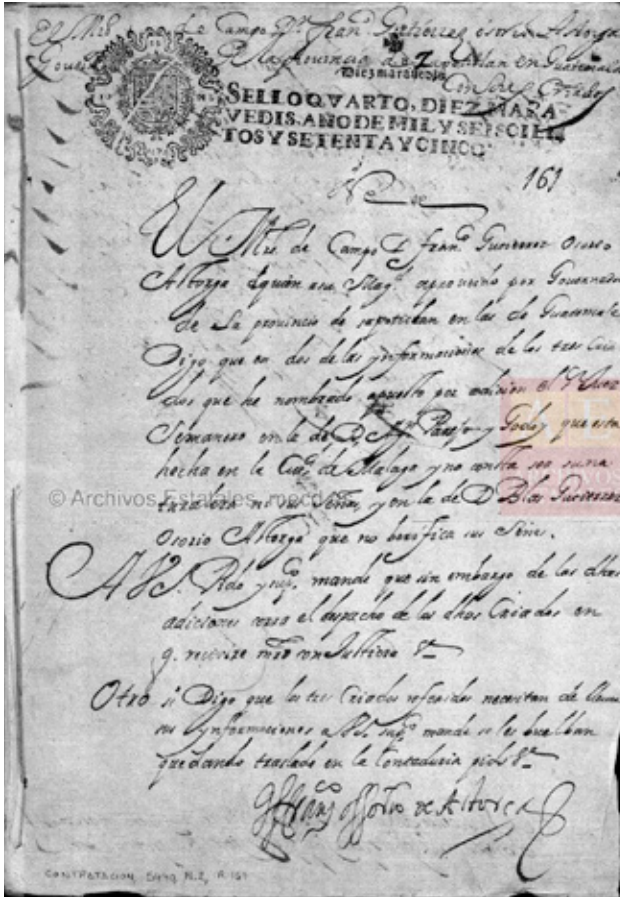 El Mro de Campo Dn Franco Gutierrez osorio Astorga
Gouer Pla Prouincia de Zapotitlan en Guatemala
Con tres Criados
Diez marauedis
SELLO QVARTO, DIEZ MARA
VEDIS, AÑO DE MIL Y SEISCIEN
TOS Y SETENTA Y CINCO
161
El Mro de Campo D franco Gutierrez Osorio
Astorga a quien su Magd a proueido por Gouernador
de La prouincia de sapotitlan en las de Guatemala
Digo que en dos de las ynformaciones de los tres Cria
dos que he nombrado a puesto por adicion el Sr Juez
Semanero en la de D. Pareja y Godoy que esta
hecha en la Ciud de Malaga y no consta ser su na
turaleza ni sus señas, y en la de D Blas Gutierrez
Osorio Astorga que no berifica sus señas.
A V.S. Pido y supco mande que sin embargo de las dhas
adiciones corra el despacho de los dhos Criados en
q. receuire mrd con Justicia &
Otro si Digo que los tres Criados referidos necesitan de lleuar
sus ynformaciones a V.S. supco mande se les buelban
quedando traslado en la Contaduria pido &
franco ossorio de Astorga
© Archivos Estatales, mecd.es
CONTRATACION, 5440, N.2, R.161